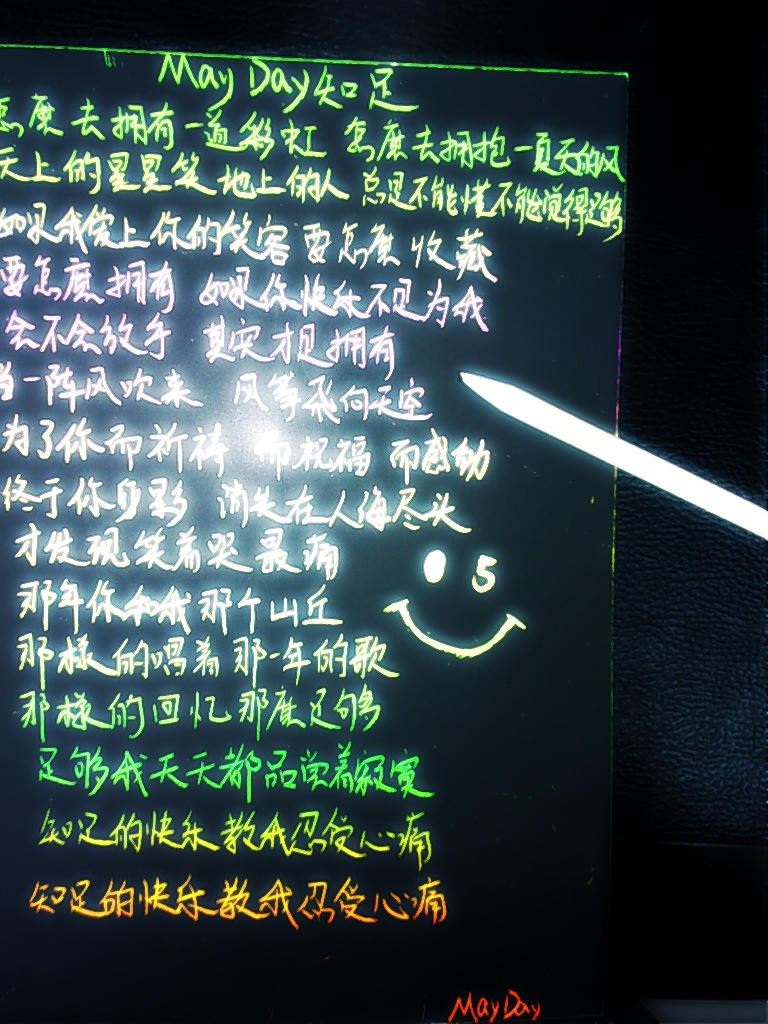 May Day 知足
怎麽去拥有一道彩虹 怎麽去拥抱一夏天的风
天上的星星笑地上的人 总是不能懂不能觉得足够
如果我爱上你的笑容 要怎麽收藏
要怎麽拥有 如果你快乐不是为我
会不会放手 其实才是拥有
当一阵风吹来 风筝飞向天空
为了你而祈祷 而祝福 而感动
终于你身影 消失在人海尽头
才发现笑着哭最痛
5
那年你和我那个山丘
那樣的唱着那一年的歌
那樣的回忆那麽足够
足够我天天都品尝着寂寞
知足的快乐教我忍受心痛
知足的快乐教我忍受心痛
MayDay